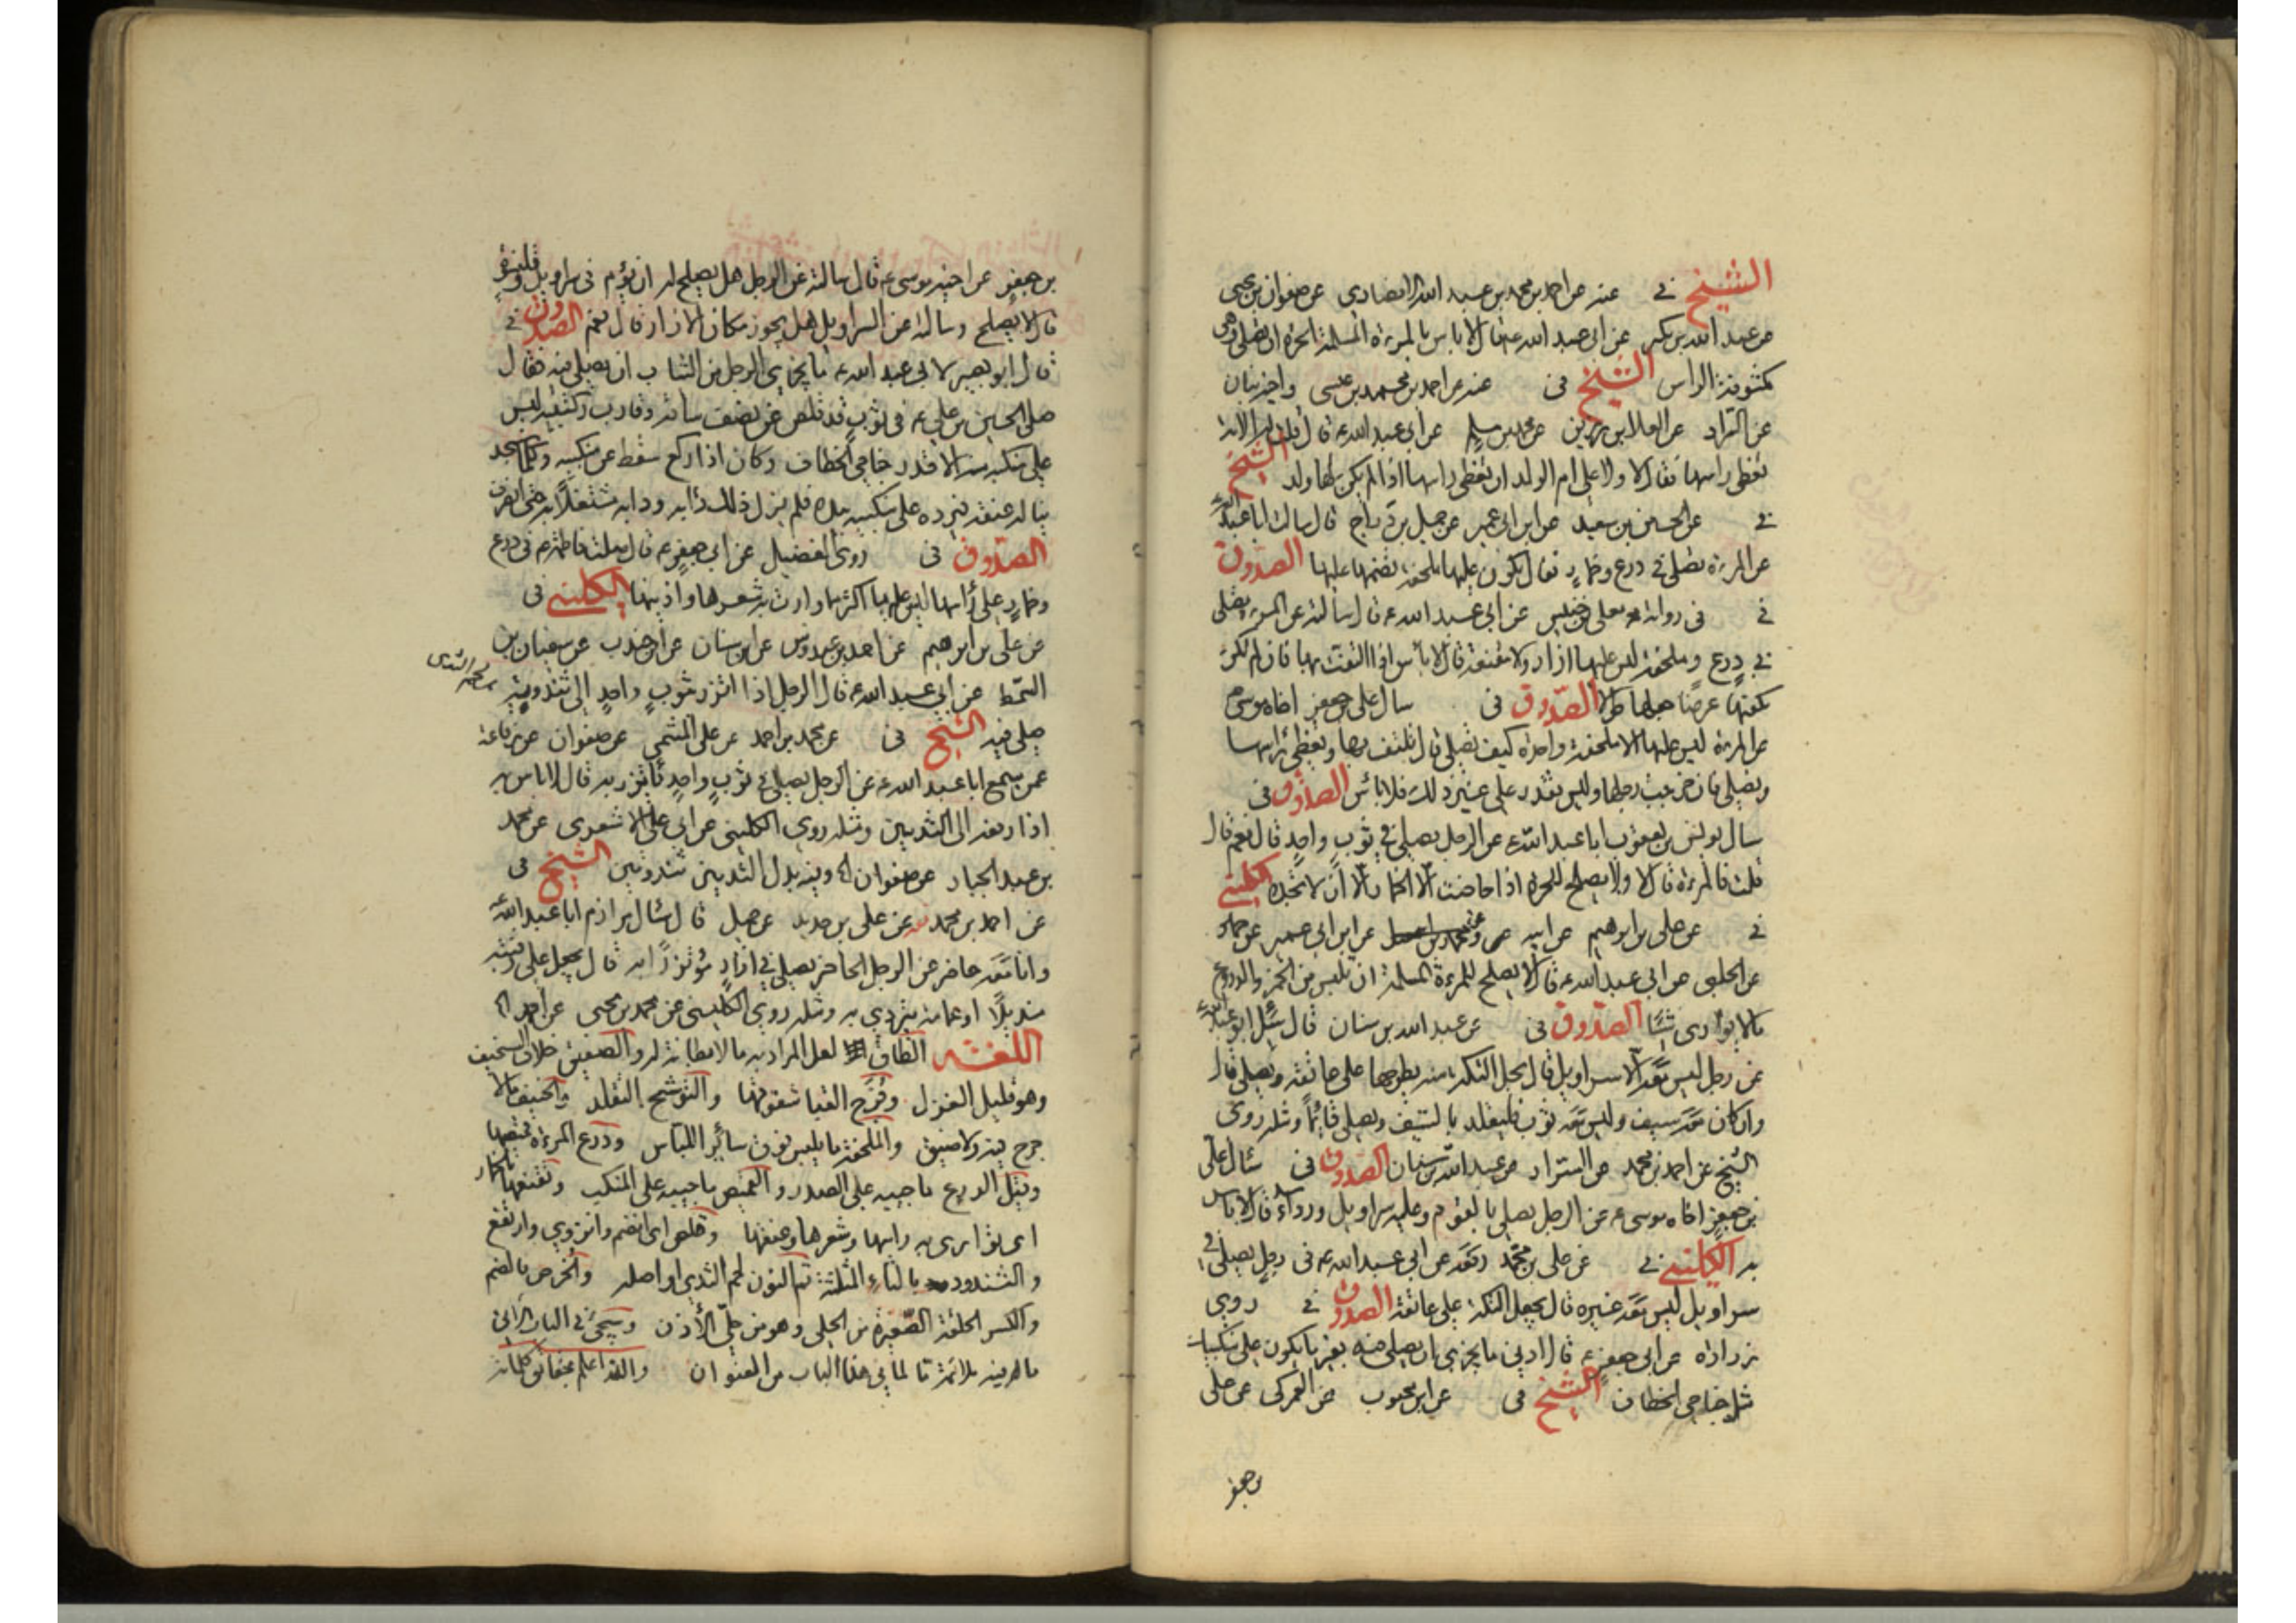 الشيخ في عنه عن احمد بن محمد بن عبد الله الانصاري عن صفوان بن يحيى
عن عبد الله بن بكير عن ابي عبد الله ع قال لا باس بالمرءة المسلمة الحرة ان تصلي وهي
مكشوفة الراس الشيخ في عنه عن احمد بن محمد بن عيسى
عن العلا بن رزين عن محمد بن مسلم عن ابي عبد الله ع قال قلت له الامة
تغطي راسها فقال لا ولا على ام الولد ان تغطي راسها اذا لم يكن لها ولد الشيخ
في عن الحسين بن سعيد عن ابن ابي عمير عن جميل بن دراج قال سالت ابا عبد الله ع
عن المرءة تصلي في درع وخمار فقال يكون عليها ملحفة تضمها عليها الصدوق
في في رواية معلى بن خنيس عن ابي عبد الله ع قال سالته عن المرءة تصلي
في درع وملحفة ليس عليها ازار ولا مقنعة قال لا باس اذا التفت بها فان لم تكن
تكفيها عرضا جعلتها طولا الصدوق في سال علي بن جعفر اخاه موسى ع
عن المرءة ليس عليها الا ملحفة واحدة كيف تصلي قال تلتف بها وتغطي راسها
وتصلي فان خرجت رجلها وليس تقدر على غير ذلك فلا باس الصدوق في
سال يونس بن يعقوب ابا عبد الله ع عن الرجل يصلي في ثوب واحد قال نعم قال
قلت فالمرءة قال لا ولا يصلح للحرة اذا حاضت الا الخمار الا ان لا تجده الكليني
في عن علي بن ابرهيم عن ابيه عن ابن ابي عمير عن حماد
عن الحلبي عن ابي عبد الله ع قال لا يصلح للمرءة المسلمة ان تلبس من الخمر والدروع
ما لا يواري شيئا الصدوق في عن عبد الله بن سنان قال سئل ابو عبد الله ع
عن رجل ليس معه الا سراويل قال يحل التكة منه يطرحها على عاتقه ويصلي قال
وان كان معه سيف وليس معه ثوب فليتقلد بالسيف ويصلي قائما ومثله روى
الشيخ عن احمد بن محمد عن السراد عن عبد الله بن سنان الصدوق في سئال علي
بن جعفر اخاه موسى ع عن الرجل يصلي بالقوم وعليه سراويل ورداء قال لا باس
به الكليني في عن علي بن محمد رفعه عن ابي عبد الله ع في رجل يصلي في
سراويل ليس معه غيره قال يجعل التكة على عاتقه الصدوق في روى
زرارة عن ابي جعفر ع قال ادنى ما يجزي ان يصلي فيه بقدر ما يكون على منكبيك
مثل جناحي الخطاف الشيخ في عن ابن محبوب عن العمركي عن علي
بن جعفر
بن جعفر عن اخيه موسى ع قال سالته عن الرجل هل يصلح له ان يؤم في سراويل وقلنسوة
قال لا يصلح وسالته عن السراويل هل يجوز مكان الازار قال نعم الصدوق في
قال ابو بصير لابي عبد الله ع ما يجزي الرجل من الثياب ان يصلي فيه فقال
صلى الحسين بن علي ع في ثوب قد قلص عن نصف ساقه وقارب ركبتيه ليس
على منكبيه منه الا قدر جناحي الخطاف وكان اذا ركع سقط عن منكبيه وكلما سجد
يناله عنقه فيرده على منكبيه بيده فلم يزل ذلك دابه ودابه مشتغلا به حتى انصرف
الصدوق في روى الفضيل عن ابي جعفر ع قال صلت فاطمة ع في درع
وخمار على راسها ليس عليها اكثر مما وارت به شعرها واذنيها الكليني في
عن علي بن ابرهيم عن احمد بن عبدوس عن ابن سنان عن ابن جندب عن سفيان بن
السمط عن ابي عبد الله ع قال الرجل اذا اتزر بثوب واحد الى ثندوتيه
صلى فيه الشيخ في عن محمد بن احمد عن علي الميثمي عن صفوان عن رفاعة
عمن سمع ابا عبد الله ع عن الرجل يصلي في ثوب واحد ياتزر به قال لا باس به
اذا رفعه الى الثديين ومثله روى الكليني عن ابي علي الاشعري عن محمد
بن عبد الجبار عن صفوان الخ وفيه بدل الثديين ثندوتين الشيخ في
عن احمد بن محمد عن علي بن حديد عن جميل قال سئال مرازم ابا عبد الله ع
وانا معه حاضر عن الرجل الحاضر يصلي في ازار مؤتزرا به قال يجعل على رقبته
منديلا او عمامة يتردي به ومثله روى الكليني عن محمد بن يحيى عن احمد الخ
اللغة الطاق لعل المراد به ما لا بطانة له والصفيق خلاف السخيف
وهو قليل الغزل وفرج القبا شقوقها والتوشح التقلد والحنيف ما لا
حرج فيه ولا ضيق والملحفة ما يلبس فوق سائر اللباس ودرع المرءة قميصها
وقيل الدرع ما جيبه على الصدر والقميص ما جيبه على المنكب وتقنعها بالخمار
اى توارى به راسها وشعرها وعنقها وقلص اى انضم وانزوى وارتفع
والثندوة بالثاء المثلثة ثم النون لحم الثدي او اصله والخرص بالضم
والكسر الحلقة الصغيرة من الحلي وهو من حلي الأذن وسيجئ في الباب الآتي
ما له فيه ملائمة تا لما في هذا الباب من العنوان والله اعلم بحقائق كلماته